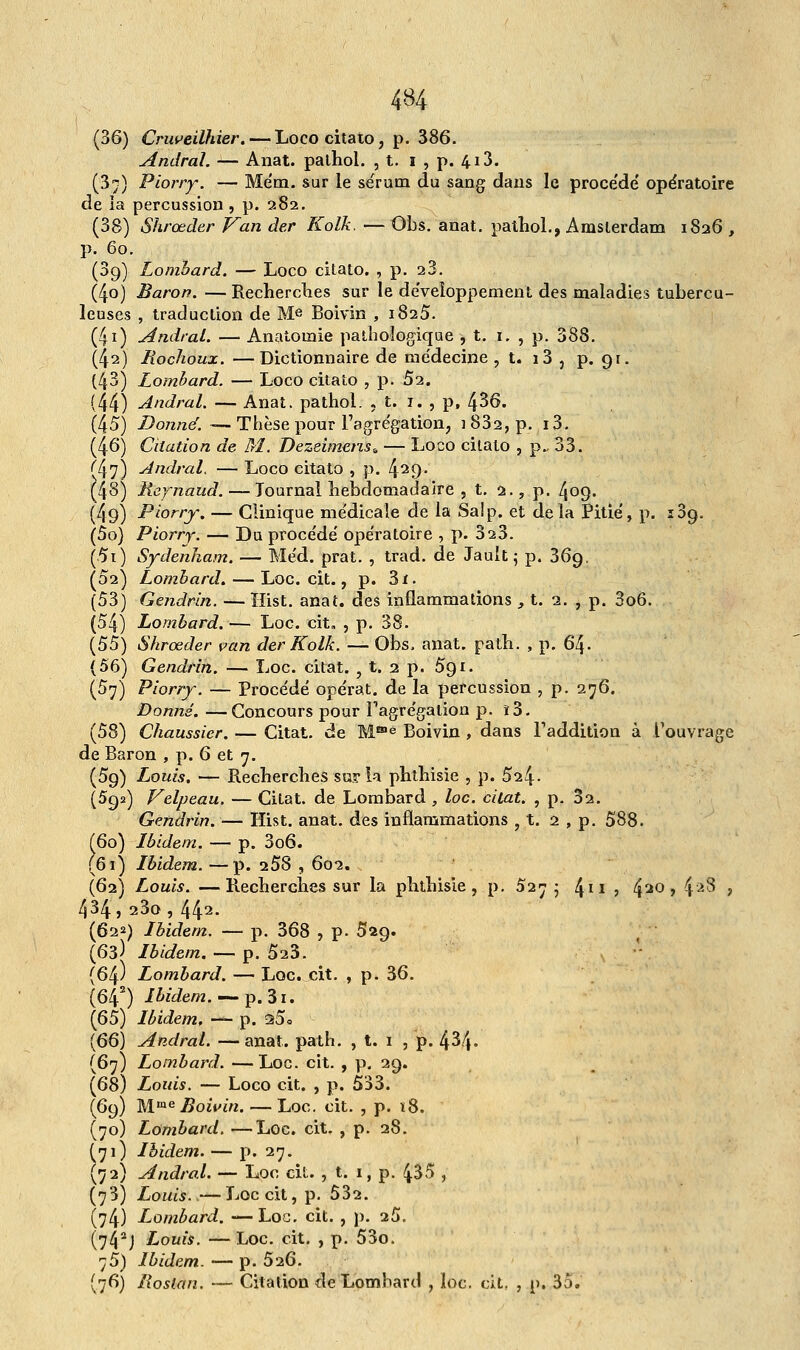 484
(36) Cruveilhier. — Loco citato, p. 386.
Andral. — Anat. pathol. , t. 1 , p. 413.
(37) Piorry. — Mém. sur le sérum du sang dans le procédé opératoire
de la percussion , p. 282.
(38) Shrœder Van der Kolk. — Obs. anat. pathol., Amsterdam 1826 ,
p. 60.
(39) Lombard. — Loco citato. , p. 23.
(40) Baron. — Recherches sur le développement des maladies tubercu-
leuses , traduction de Me Boivin , 1825.
(41) Andral. — Anatomie pathologique , t. 1. , p. 388.
(42) Rochoux. — Dictionnaire de médecine , t. 13 , p. 91.
(43) Lombard. — Loco citato , p. 52.
(44) Andral. — Anat. pathol. , t. 1. , p, 436.
(45) Donné. — Thèse pour l'agrégation, 1832, p. 13.
(46) Citation de M. Dezeimens. — Loco citato , p. 33.
(47) Andral. — Loco citato , p. 429.
(48) Reynaud. — Journal hebdomadaire , t. 2., p. 409.
(49) Piorry. — Clinique médicale de la Salp. et de la Pitié, p. 139.
(50) Piorry. — Du procédé opératoire , p. 323.
(51) Sydenham. — Méd. prat. , trad. de Jault ; p. 369.
(52) Lombard. — Loc. cit., p. 31.
(53) Gendrin. — Hist. anat. des inflammations , t. 2. , p. 306.
(54) Lombard. — Loc. cit. , p. 38.
(55) Shrœder van der Kolk. — Obs. anat. path. , p. 64.
(56) Gendrin. — Loc. citat. , t. 2 p. 591.
(57) Piorry. — Procédé opérat. de la percussion , p. 276.
Donné. — Concours pour l'agrégation p. 13.
(58) Chaussier. — Citat. de Mme Boivin , dans l'addition à l'ouvrage
de Baron , p. 6 et 7.
(59) Louis. — Recherches sur la phthisie , p. 524.
(592) Velpeau. — Citat. de Lombard , loc. citat. , p. 32.
Gendrin. — Hist. anat. des inflammations , t. 2 , p. 588.
(60) Ibidem. — p. 306.
(61) Ibidem. — p. 258 , 602.
(62) Louis. — Recherches sur la phthisie , p. 527 ; 411 , 420 , 428 ,
434 , 230 , 442.
(622) Ibidem. — p. 368 , p. 529.
(63) Ibidem. — p. 523.
(64) Lombard. — Loc. cit. , p. 36.
(64²) Ibidem. — p. 31.
(65) Ibidem. — p. 25.
(66) Andral. — anat. path. , t. 1 , p. 434.
(67) Lombard. — Loc. cit. , p. 29.
(68) Louis. — Loco cit. , p. 533.
(69) Mme Boivin. — Loc. cit. , p. 18.
(70) Lombard. — Loc. cit. , p. 28.
(71) Ibidem. — p. 27.
(72) Andral. — Loc cit. , t. 1, p. 435 ,
(73) Louis. — Loc cit, p. 532.
(74) Lombard. — Loc. cit. , p. 25.
(74²) Louis. — Loc. cit. , p. 530.
75) Ibidem. — p. 526.
(76) Rostan. — Citation de Lombard , loc. cit. , p. 35.